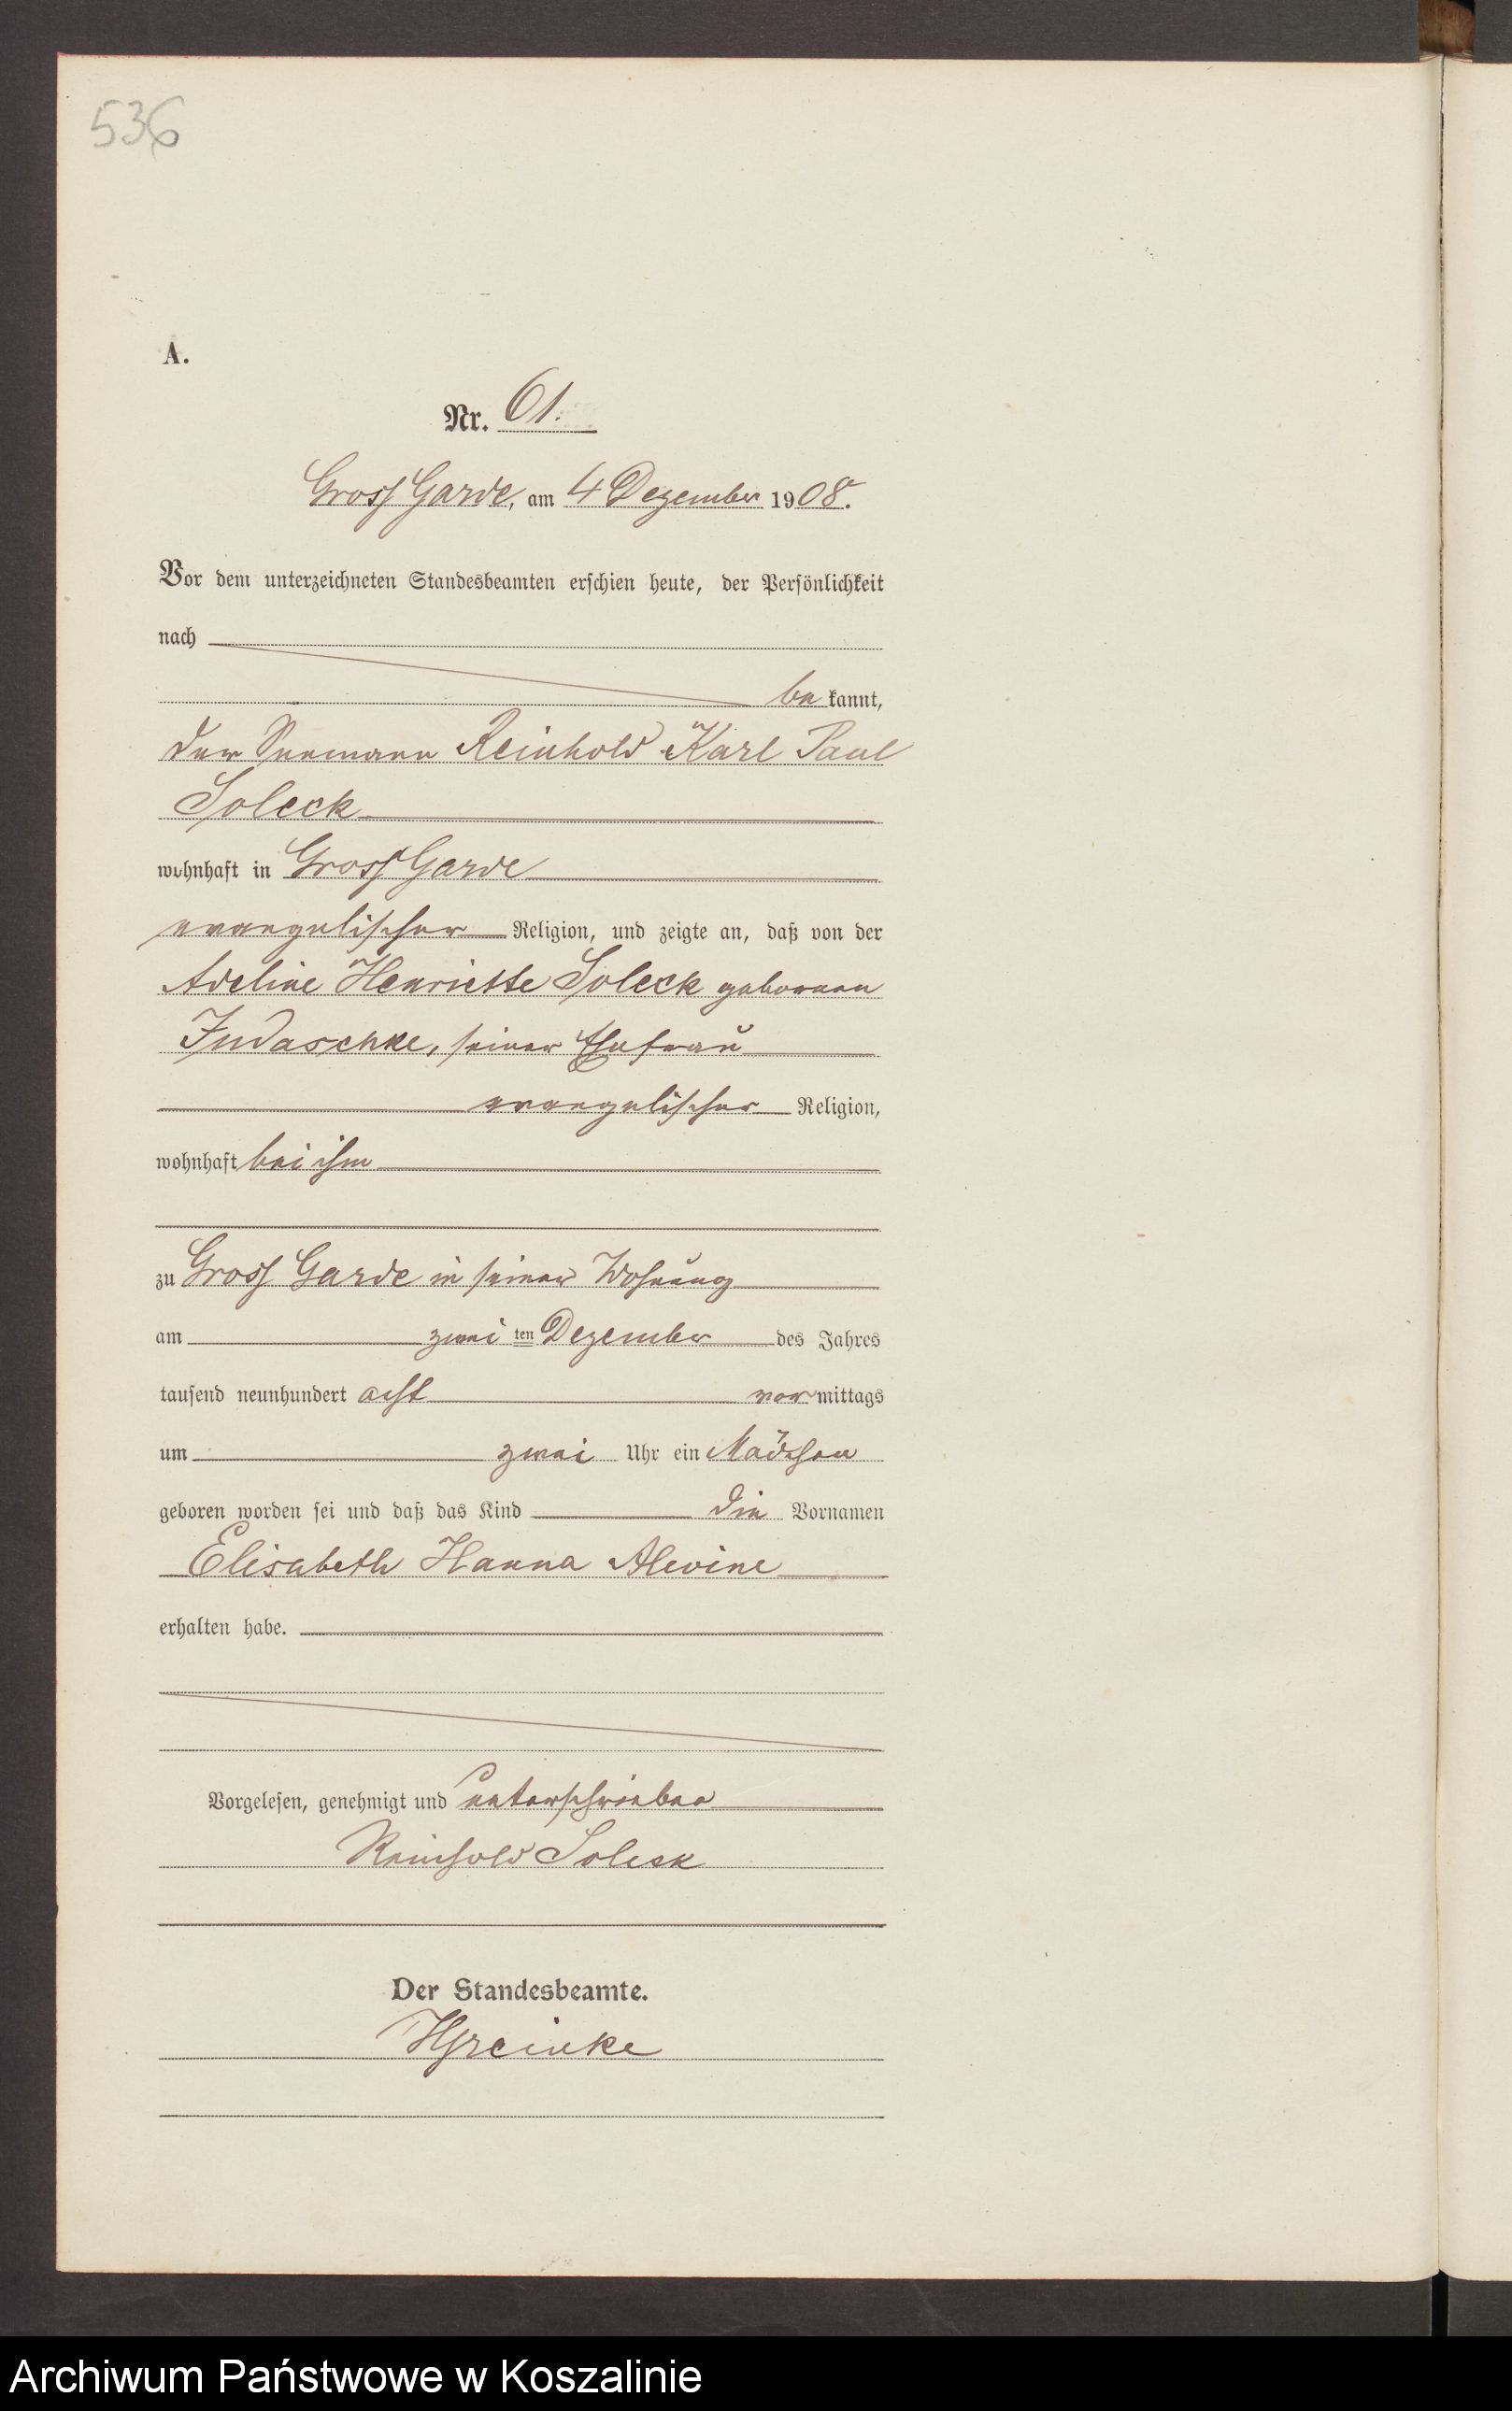 536
A.
Nr. 61.
Gross Garde, am 4 Dezember 1908.
Vor dem unterzeichneten Standesbeamten erschien heute, der Persönlichkeit
nach
be kannt,
der Seemann Reinhold Karl Paul
Soleck
wohnhaft in Gross Garde
evangelischer Religion, und zeigte an, daß von der
Adeline Henriette Soleck geborenen
Judaschke, seiner Ehefrau
evangelischer Religion,
wohnhaft bei ihm
zu Gross Garde in seiner Wohnung
am zwei ten Dezember des Jahres
tausend neunhundert acht vor mittags
um zwei Uhr ein Mädchen
geboren worden sei und daß das Kind die Vornamen
Elisabeth Hanna Alwine
erhalten habe.
Vorgelesen, genehmigt und unterschrieben
Reinhold Soleck
Der Standesbeamte.
Archiwum Państwowe w Koszalinie